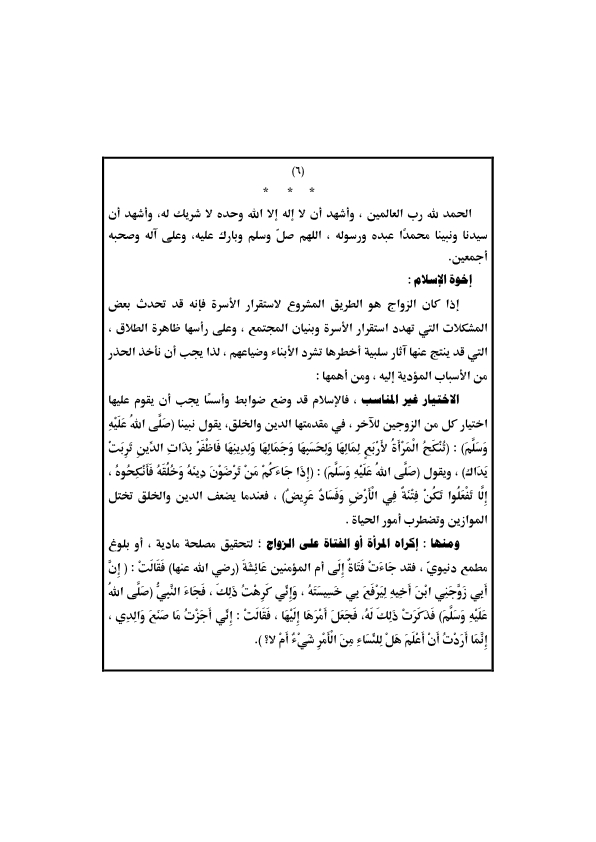 (٦)
* * *
الحمد لله رب العالمين ، وأشهد أن لا إله إلا الله وحده لا شريك له، وأشهد أن
سيدنا ونبينا محمدًا عبده ورسوله ، اللهم صلّ وسلم وبارك عليه، وعلى آله وصحبه
أجمعين.
إخوة الإسلام :
إذا كان الزواج هو الطريق المشروع لاستقرار الأسرة فإنه قد تحدث بعض
المشكلات التي تهدد استقرار الأسرة وبنيان المجتمع ، وعلى رأسها ظاهرة الطلاق ،
التي قد ينتج عنها آثار سلبية أخطرها تشرد الأبناء وضياعهم ، لذا يجب أن نأخذ الحذر
من الأسباب المؤدية إليه ، ومن أهمها :
الاختيار غير المناسب ، فالإسلام قد وضع ضوابط وأسسًا يجب أن يقوم عليها
اختيار كل من الزوجين للآخر ، في مقدمتها الدين والخلق، يقول نبينا (صَلَّى اللهُ عَلَيْهِ
وَسَلَّمَ) : (تُنْكَحُ الْمَرْأَةُ لأَرْبَعٍ لِمَالِهَا وَلِحَسَبِهَا وَجَمَالِهَا وَلِدِينِهَا فَاظْفَرْ بِذَاتِ الدِّينِ تَرِبَتْ
يَدَاكَ) ، ويقول (صَلَّى اللهُ عَلَيْهِ وَسَلَّمَ) : (إِذَا جَاءَكُمْ مَنْ تَرْضَوْنَ دِينَهُ وَخُلُقَهُ فَأَنْكِحُوهُ ،
إِلَّا تَفْعَلُوا تَكُنْ فِتْنَةٌ فِي الْأَرْضِ وَفَسَادٌ عَرِيضٌ) ، فعندما يضعف الدين والخلق تختل
الموازين وتضطرب أمور الحياة .
ومنها : إكراه المرأة أو الفتاة على الزواج ؛ لتحقيق مصلحة مادية ، أو بلوغ
مطمع دنيويّ ، فقد جَاءَتْ فَتَاةٌ إِلَى أم المؤمنين عَائِشَةَ (رضي الله عنها) فَقَالَتْ : ( إِنَّ
أَبِي زَوَّجَنِي ابْنَ أَخِيهِ لِيَرْفَعَ بِي خَسِيسَتَهُ ، وَإِنِّي كَرِهْتُ ذَلِكَ ، فَجَاءَ النَّبِيُّ (صَلَّى اللهُ
عَلَيْهِ وَسَلَّمَ) فَذَكَرَتْ ذَلِكَ لَهُ، فَجَعَلَ أَمْرَهَا إِلَيْهَا ، فَقَالَتْ : إِنِّي أَجَزْتُ مَا صَنَعَ وَالِدِي ،
إِنَّمَا أَرَدْتُ أَنْ أَعْلَمَ هَلْ لِلنِّسَاءِ مِنَ الْأَمْرِ شَيْءٌ أَمْ لا؟ ).